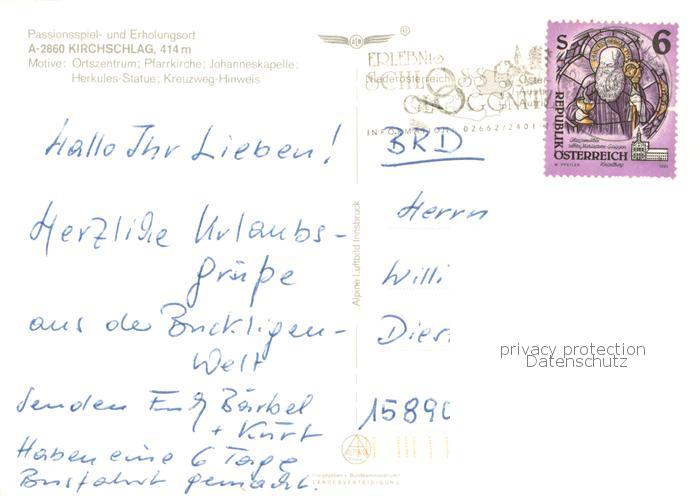 Passionsspiel- und Erholungsort
A-2860 KIRCHSCHLAG, 414 m
Motive: Ortszentrum; Pfarrkirche; Johanneskapelle;
Herkules-Statue; Kreuzweg-Hinweis
Hallo Ihr Lieben!
Herzliche Urlaubs-
grüße
aus der Buckligen-
Welt
senden Euch Bärbel
+ Kurt
Haben eine 6 Tage
Busfahrt gemacht.
Alpine Luftbild Innsbruck
ERLEBNIS
Niederösterreich
SCHLOSS
GLOGGNITZ
INFORMATION 02662/2401
S 6
REPUBLIK
ÖSTERREICH
BRD
Herrn
Willi
Dies
15890
LANDESVERTEIDIGUNG
privacy protection
Datenschutz